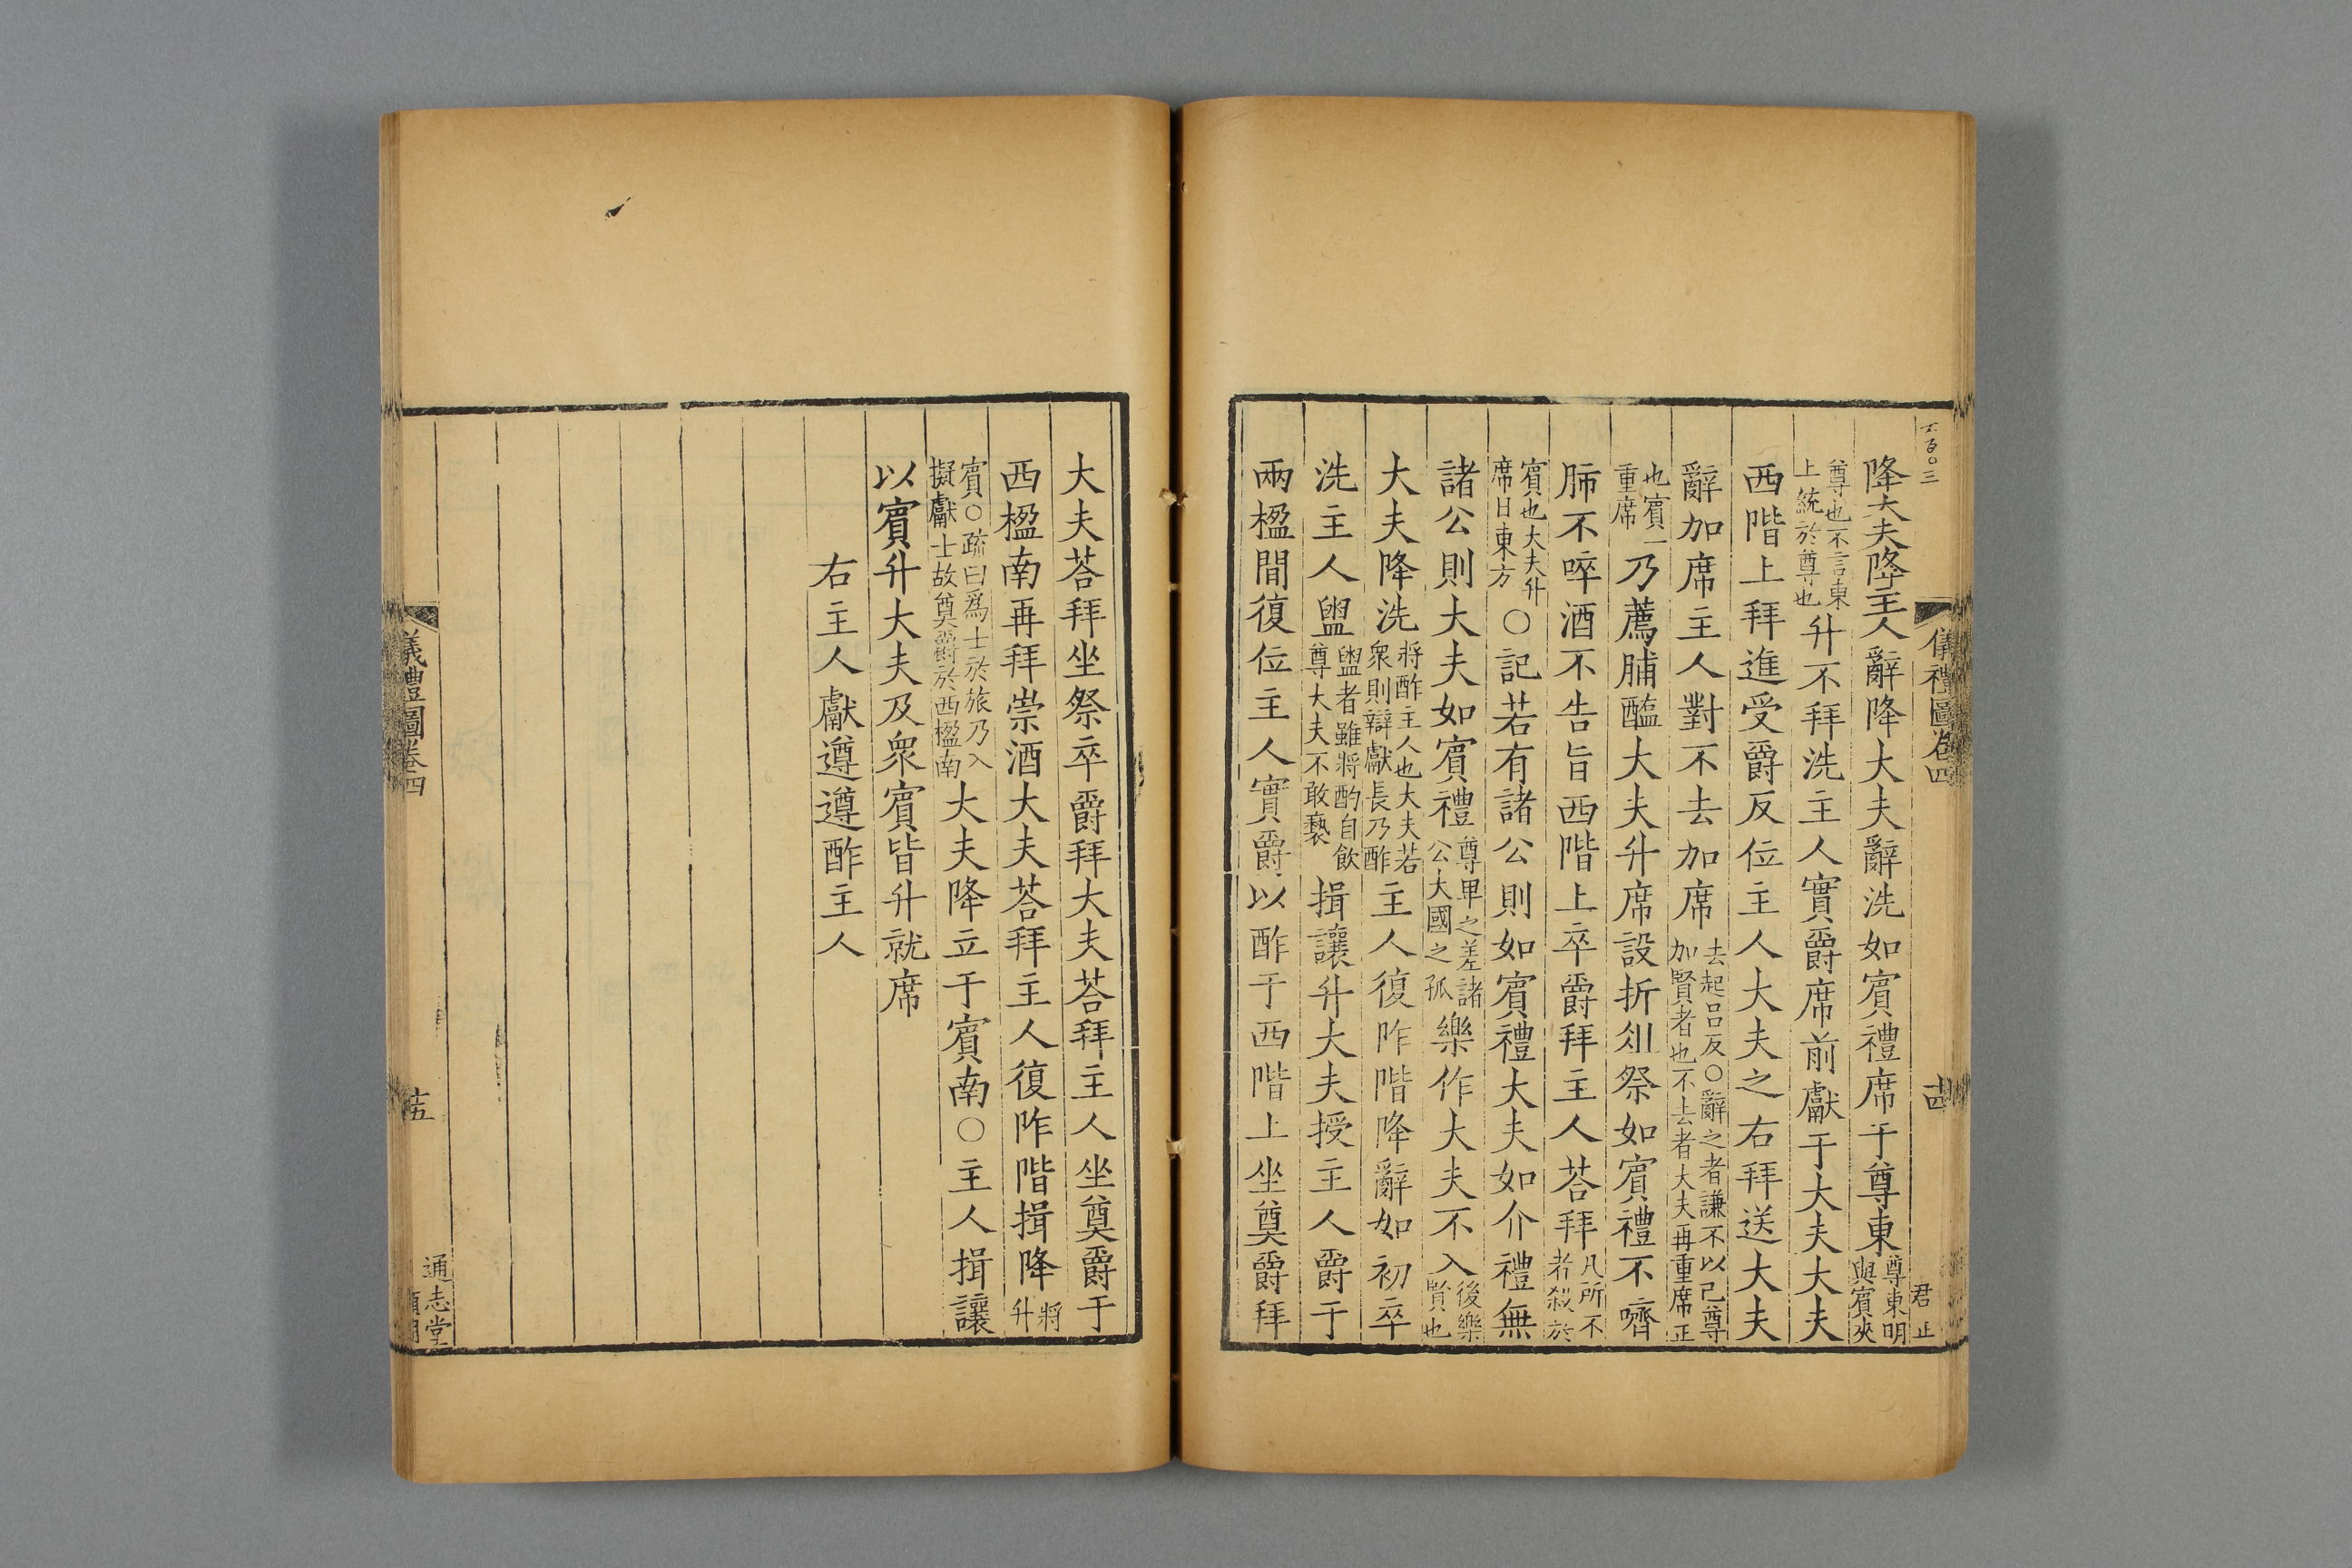 儀禮圖卷四
十四
君正
降大夫降主人辭降大夫辭洗如賓禮席于尊東尊東明與賓夾
尊也不言東上統於尊也升不拜洗主人實爵席前獻于大夫大夫
西階上拜進受爵反位主人大夫之右拜送大夫
辭加席主人對不去加席去起呂反○辭之者謙不以己尊加賢者也不去者大夫再重席正
也賓一重席乃薦脯醢大夫升席設折俎祭如賓禮不嚌
肺不啐酒不告旨西階上卒爵拜主人荅拜凡所不者殺於
賓也大夫升席由東方○記若有諸公則如賓禮大夫如介禮無
諸公則大夫如賓禮尊卑之差諸公大國之孤樂作大夫不入後樂賢也
大夫降洗將酢主人也大夫若衆則辯獻長乃酢主人復阼階降辭如初卒
洗主人盥盥者雖將酌自飲尊大夫不敢褻揖讓升大夫授主人爵于
兩楹間復位主人實爵以酢于西階上坐奠爵拜
大夫荅拜坐祭卒爵拜大夫荅拜主人坐奠爵于
西楹南再拜崇酒大夫荅拜主人復阼階揖降將升
賓○疏曰爲士於旅乃入擬獻士故奠爵於西楹南大夫降立于賓南○主人揖讓
以賓升大夫及衆賓皆升就席
右主人獻遵遵酢主人
儀禮圖卷四
十五
通志堂